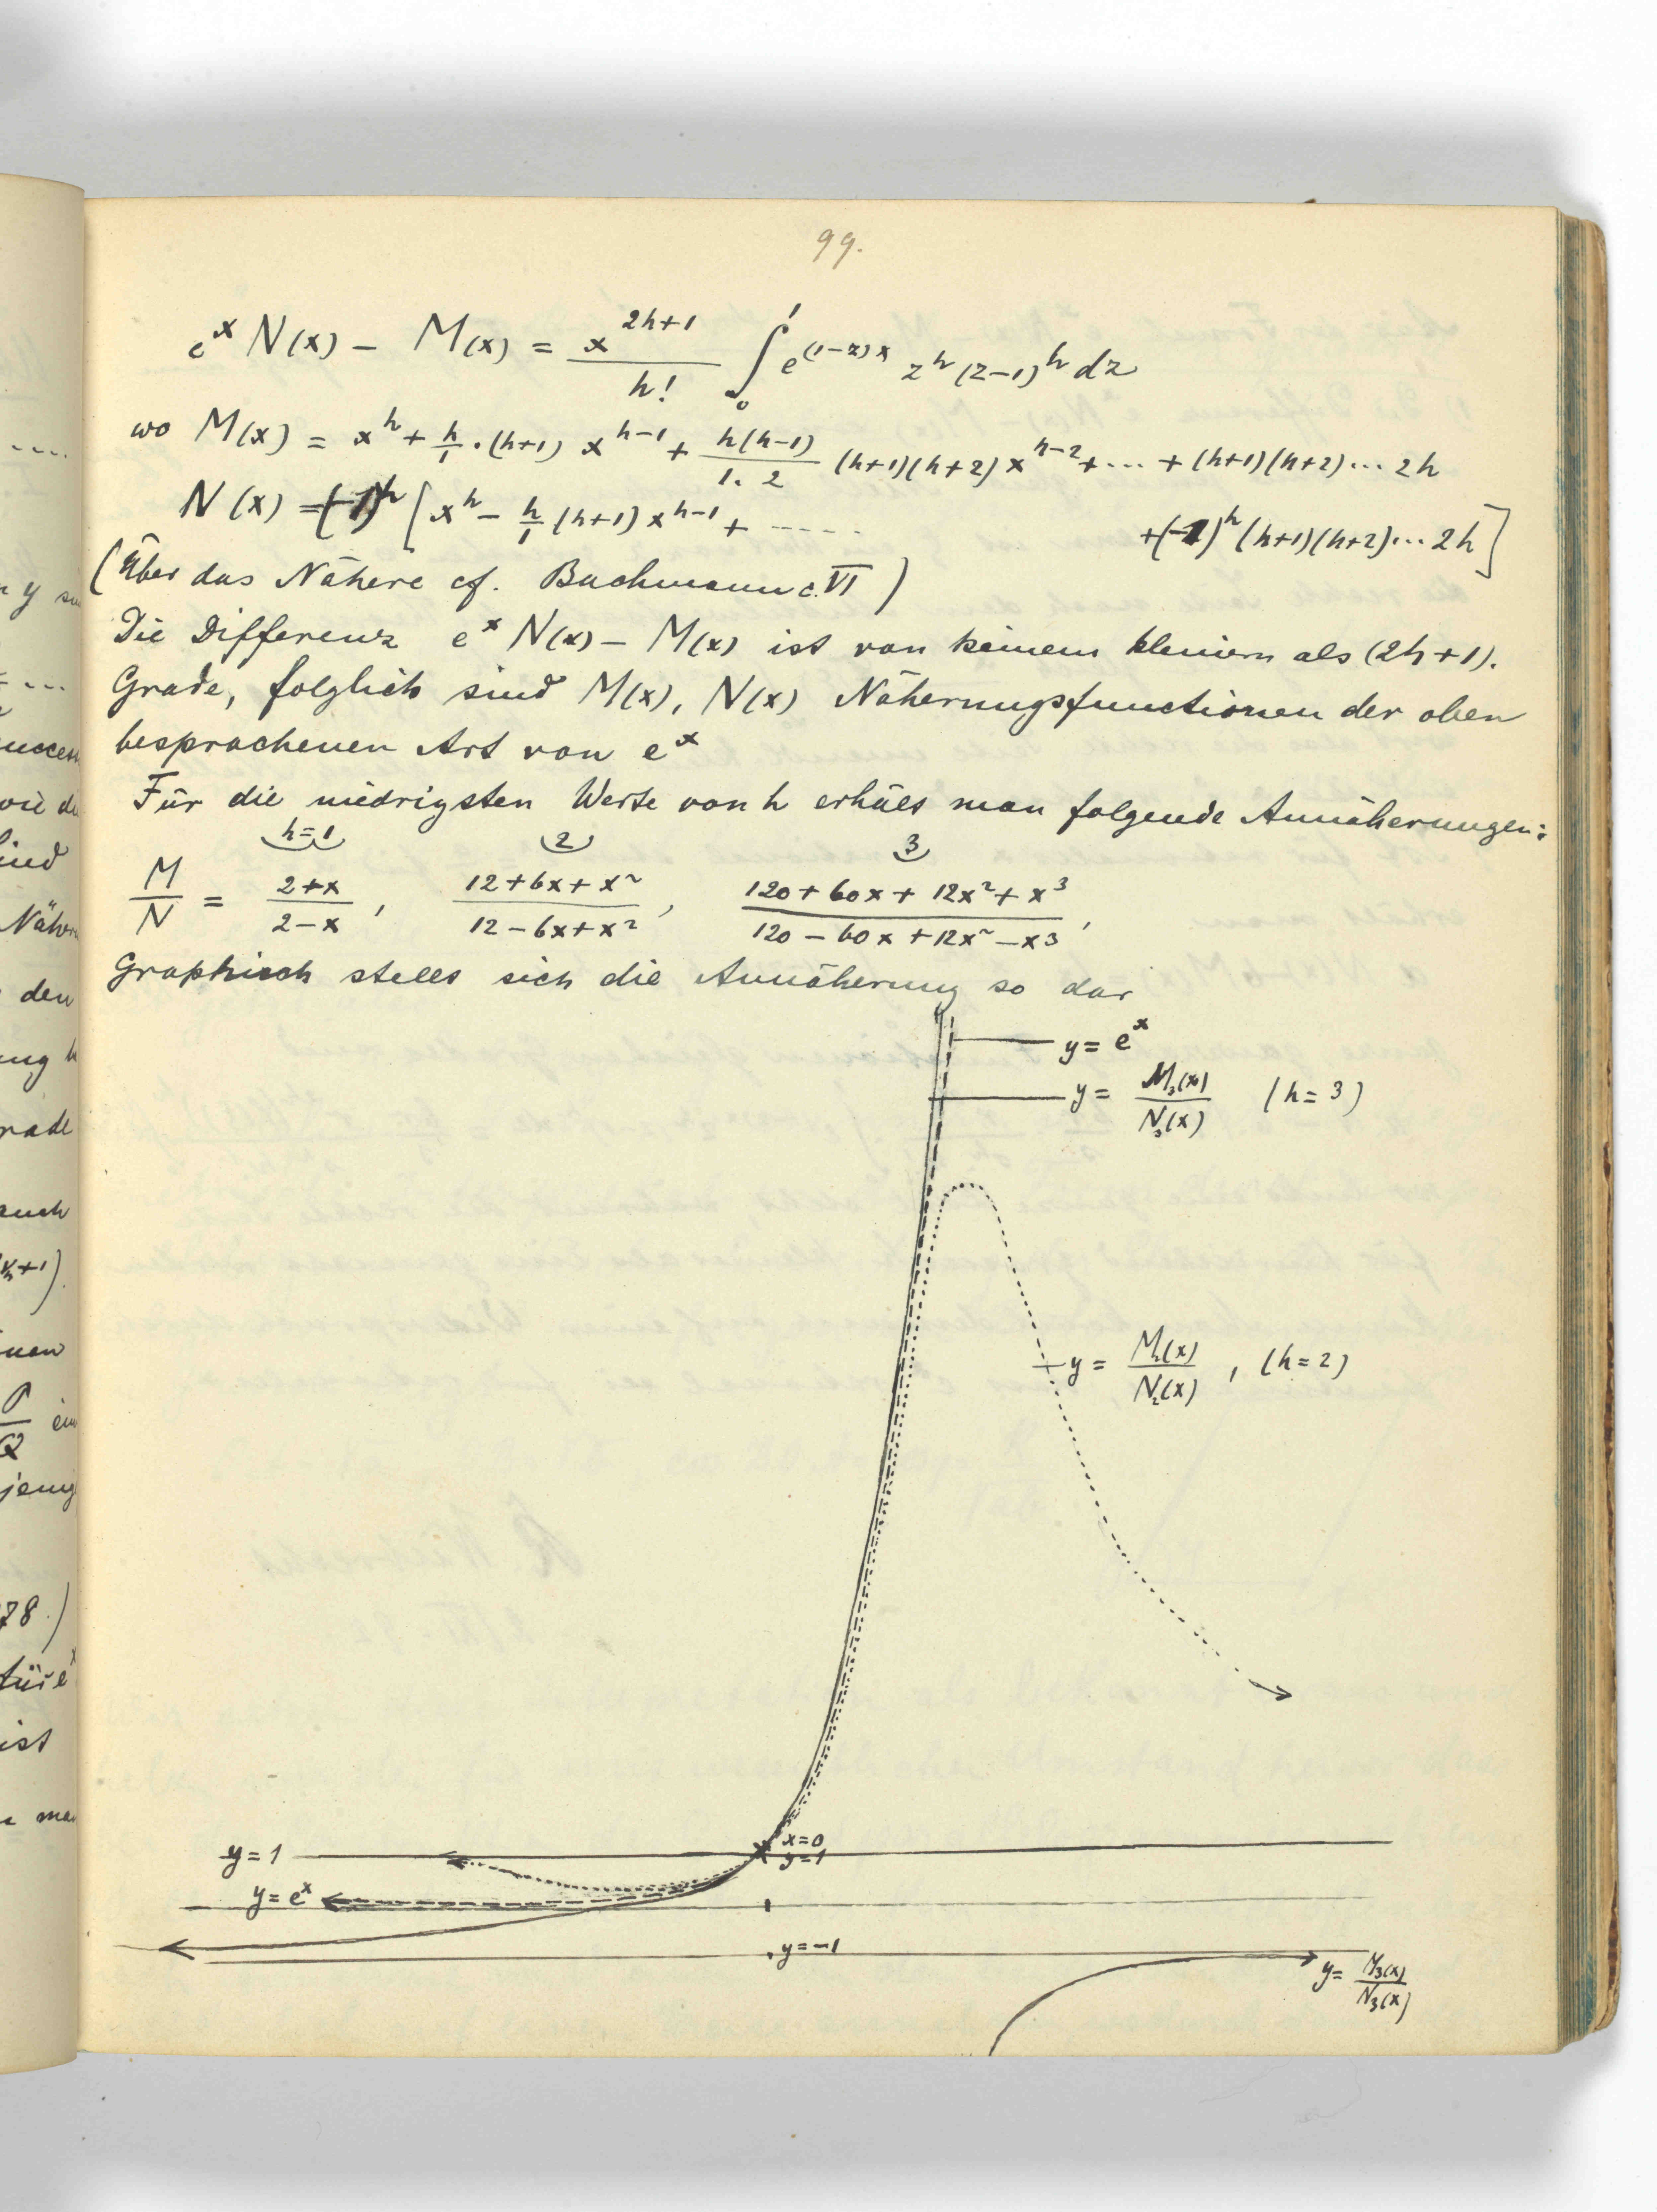 99.
e^x N(x) − M(x) = x^{2h+1}/h! ∫_0^1 e^{(1−z)x} z^h (z−1)^h dz
wo M(x) = x^h + h/1 · (h+1) x^{h−1} + h(h−1)/1.2 (h+1)(h+2) x^{h−2} + ... + (h+1)(h+2) ... 2h
N(x) = (−1)^h [x^h − h/1 (h+1) x^{h−1} + ..... + (−1)^h (h+1)(h+2) ... 2h]
(Über das Nähere cf. Bachmann c. VI)
Die Differenz e^x N(x) − M(x) ist von keinem kleinern als (2h+1).
Grade, folglich sind M(x), N(x) Näherungsfunctionen der oben
besprochenen Art von e^x
Für die niedrigsten Werte von h erhält man folgende Annäherungen:
h=1 2 3
M/N = (2+x)/(2−x), (12+6x+x²)/(12−6x+x²), (120+60x+12x²+x³)/(120−60x+12x²−x³),
Graphisch stellt sich die Annäherung so dar
y = e^x
y = M_3(x)/N_3(x) (h=3)
y = M_2(x)/N_2(x), (h=2)
x=0
y=1
y=1
y=e^x
y=−1
y = M_3(x)/N_3(x)
....
y
...
den
rade
auch
P/Q
78.)
ist